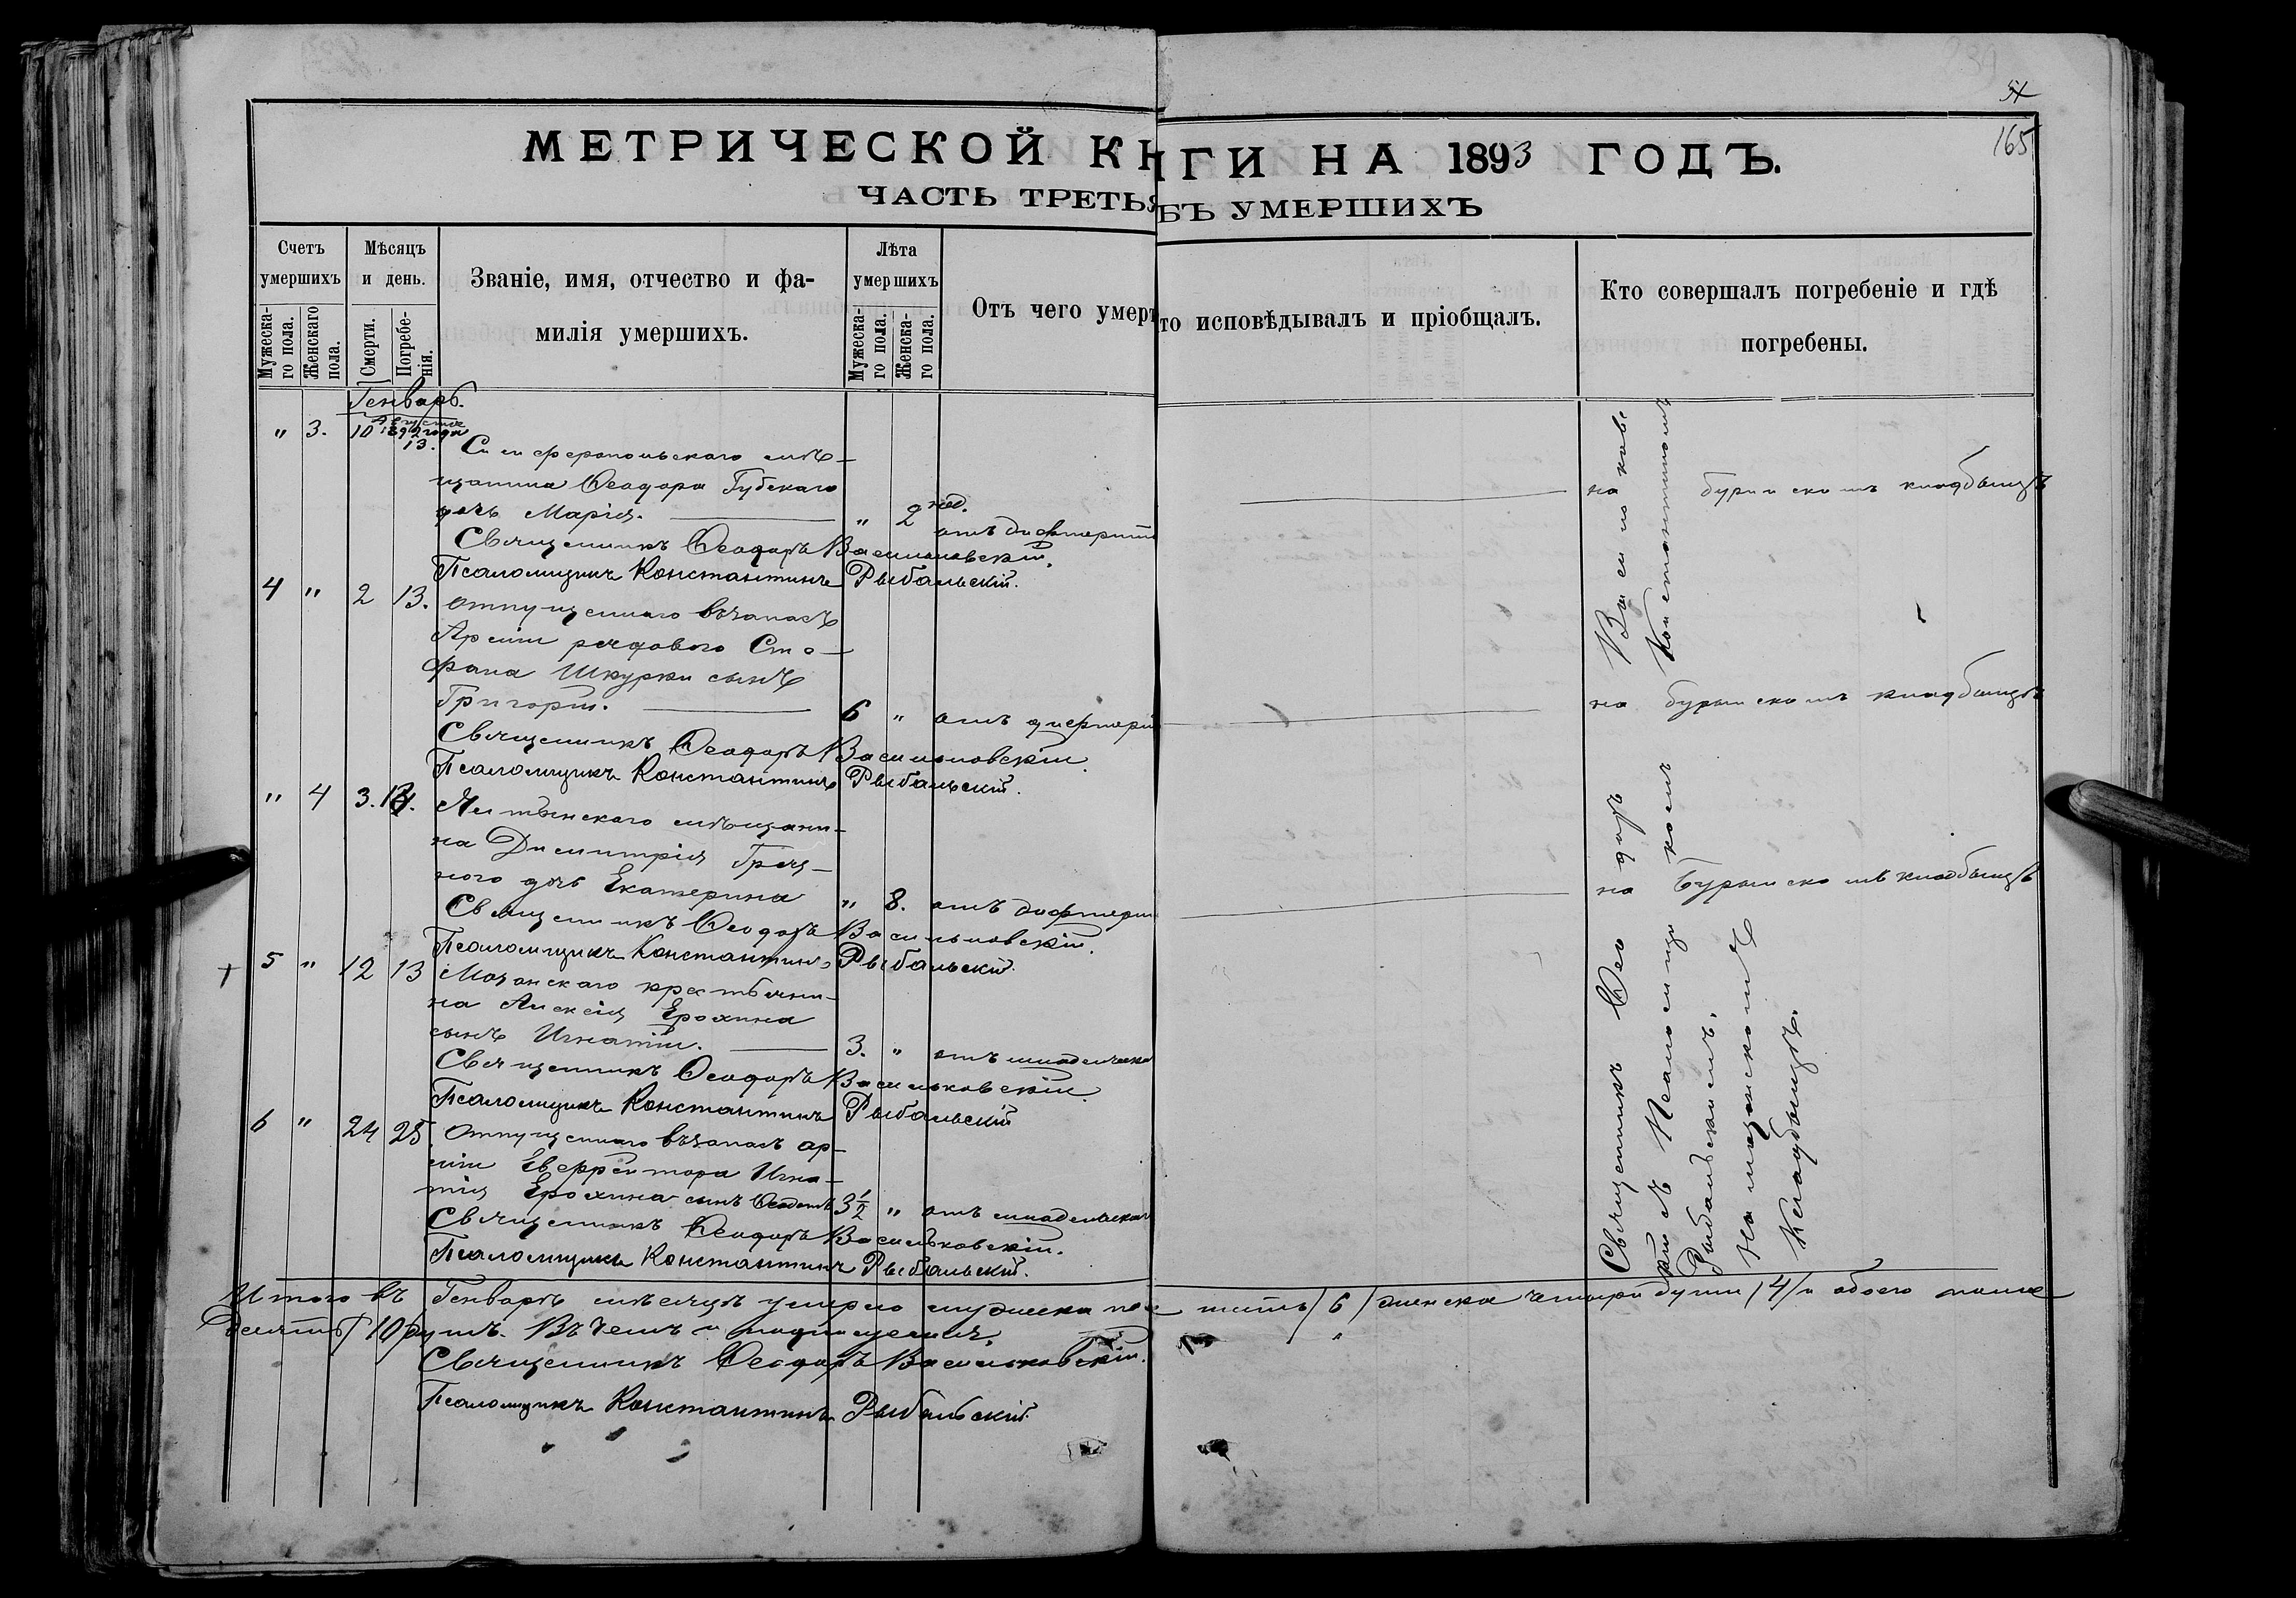 239
54
165
МЕТРИЧЕСКОЙ КНИГИ НА 1893 ГОДЪ.
ЧАСТЬ ТРЕТЬЯ БЪ УМЕРШИХЪ
Счетъ умершихъ
Мужеска-го пола.
Женскаго пола.
Мѣсяцъ и день.
Смерти.
Погребе-нія.
Званіе, имя, отчество и фа-
милія умершихъ.
Лѣта умершихъ
Мужеска-го пола.
Женска-го пола.
Отъ чего умер
то исповѣдывалъ и пріобщалъ.
Кто совершалъ погребеніе и гдѣ
погребены.
Генварь.
" 3. 10 1892 года 13.
Симферопольскаго мѣ-
щанина Ѳеодора Губскаго
дочь Марія. " 2 нед. отъ дифтерит
на бурунскомъ кладбищѣ
Священникъ Ѳеодоръ Васильковскій.
Псаломщикъ Константинъ Рыбальскій.
4 " 2 13. Отпущеннаго въ запасъ
Арміи рядового Сте-
фана Шкурки сынъ
Григорій. 6 " отъ дифтери
на бурунскомъ кладбищѣ
Священникъ Ѳеодоръ Васильковскій
Псаломщикъ Константинъ Рыбальскій.
" 4 3. 14. Ялтинскаго мѣщани-
на Димитрія Греч-
ного дочь Екатерина " 8. отъ дифтери
на Бурунскомъ кладбищѣ
Священникъ Ѳеодоръ Васильковскій.
Псаломщикъ Константинъ Рыбальскій.
5 " 12 13 крестьяни-
на Алексія Ерохина
сынъ Игнатій. 3. " отъ младенческо
Священникъ Ѳеодоръ Васильковскій
Псаломщикъ Константинъ Рыбальскій
6 " 24 25. Отпущеннаго въ запасъ ар-
міи Евфрейтора Игна-
тія Ерохина сынъ 3½ " отъ младенческ
Священникъ Ѳеодоръ Васильковскій.
Псаломщикъ Константинъ Рыбальскій.
Священникъ Ѳеодоръ Васильков
кій съ Псаломщикомъ Константиномъ
Рыбальскимъ.
На
Кладбищѣ.
Итого въ Генварѣ мѣсяцѣ умерло мужеска по шесть /6/ женска четыре души /4/ а обоего пола
десять /10/ душъ. Въ чемъ и подписуемся.
Священникъ Ѳеодоръ Васильковскій.
Псаломщикъ Константинъ Рыбальскій.